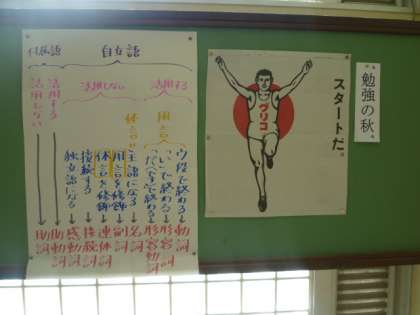 勉強の秋
スタートだ。
グリコ
自立語
付属語
活用する
活用しない
活用する
活用しない
用言
体言
ウ段で終わる
「い」で終わる
「だ・です」で終わる
主語になる
用言を修飾
体言を修飾
接続する
独立語になる
動詞
形容詞
形容動詞
名詞
副詞
連体詞
接続詞
感動詞
助動詞
助詞